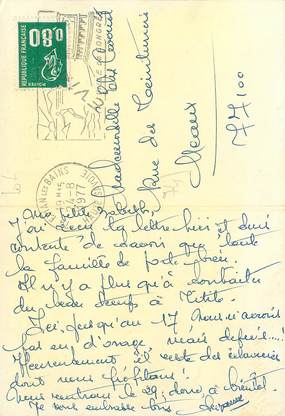 0,80
REPUBLIQUE FRANÇAISE
Mademoiselle
Rue des
Meaux
77100
EVIAN LES BAINS
HAUTE SAVOIE
Ma petite
J'ai reçu ta lettre hier et suis
contente de savoir que toute
la famille se porte bien.
Il n'y a plus qu'à souhaiter
du beau temps à
Ici, jusqu'au 17 nous n'avons
pas eu d'orage, mais depuis....!
Heureusement il reste des éclaircies
dont nous profitons!
Nous rentrons le 29, donc à bientôt
Je vous embrasse tous